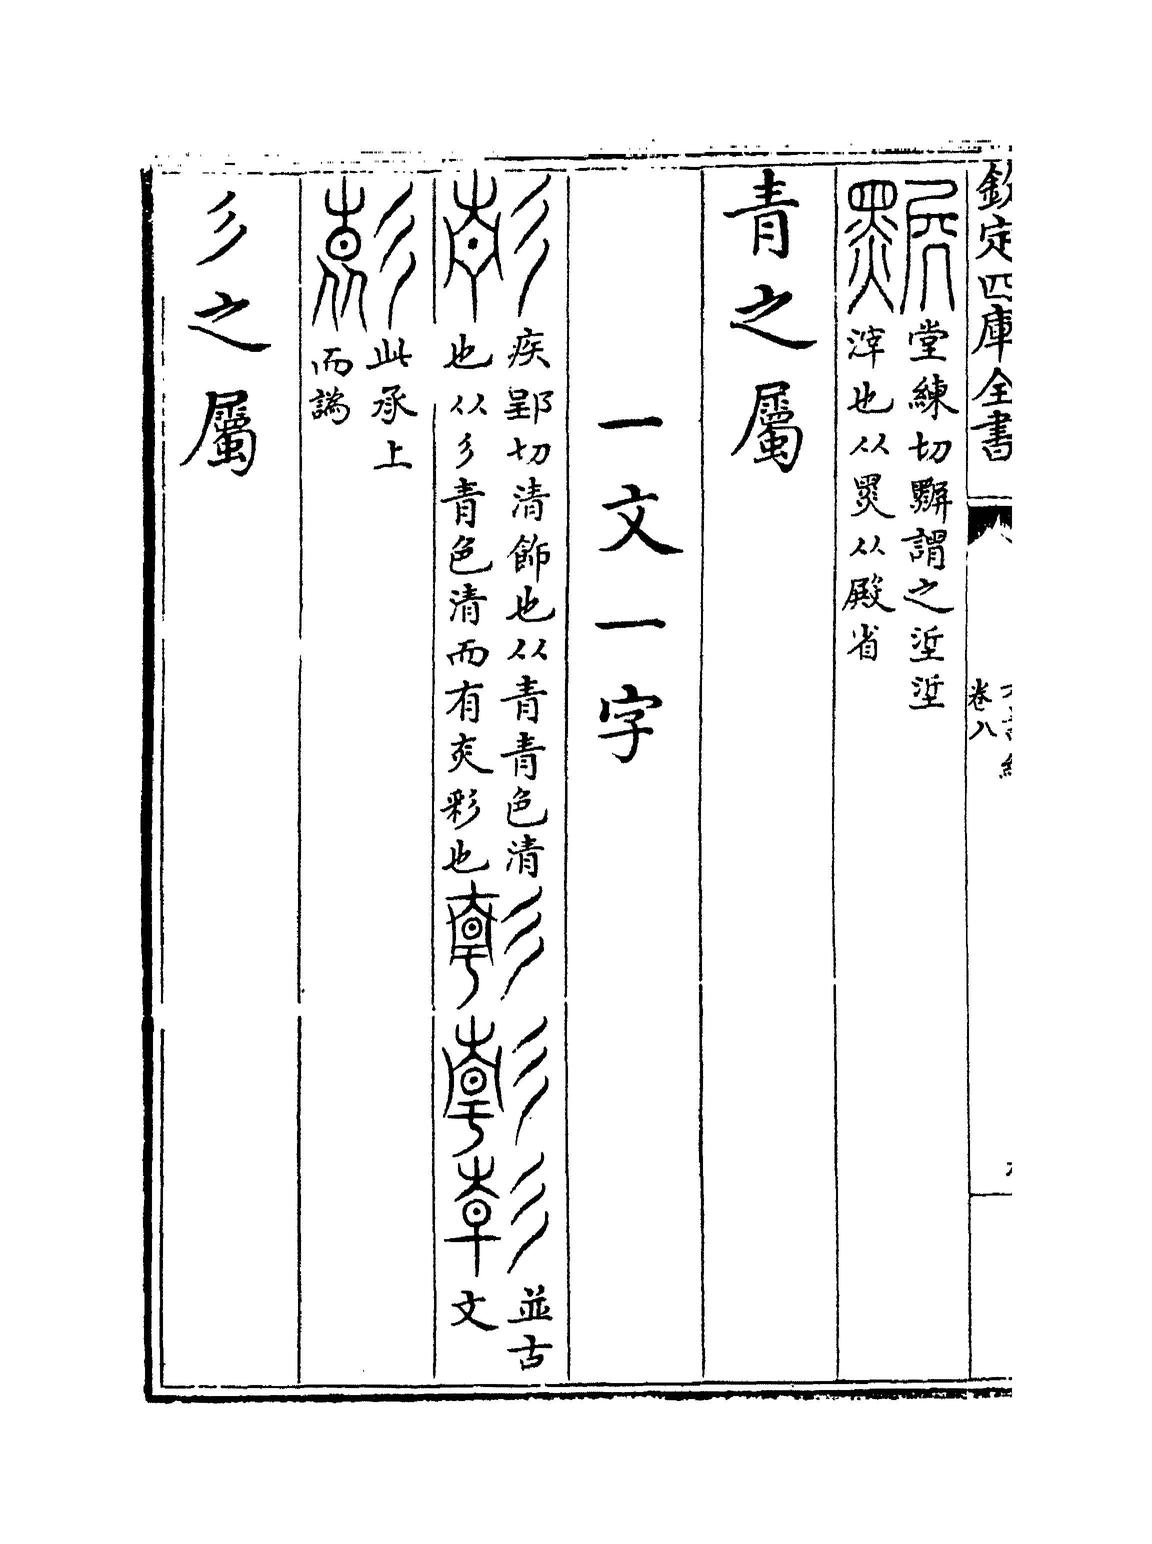 欽定四庫全書
卷八
堂練切黰謂之垽垽
滓也从黑从殿省
青之屬
一文一字
疾郢切清飾也从青青色清
也从彡青色清而有文彩也
並古
文
此承上
而譌
彡之屬